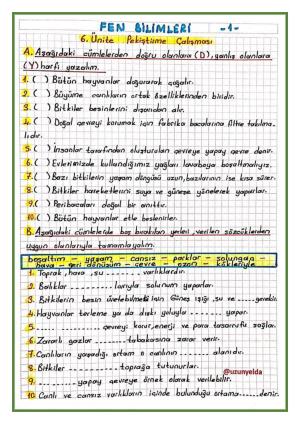 FEN BİLİMLERİ -1-
6. Ünite Pekiştirme Çalışması
A. Aşağıdaki cümlelerden doğru olanlara (D), yanlış olanlara
(Y) harfi yazalım.
1. ( ) Bütün hayvanlar doğurarak çoğalır.
2. ( ) Büyüme canlıların ortak özelliklerinden biridir.
3. ( ) Bitkiler besinlerini dışarıdan alır.
4. ( ) Doğal çevreyi korumak için fabrika bacalarına filtre takılma-
lıdır.
5. ( ) İnsanlar tarafından oluşturulan çevreye yapay çevre denir.
6. ( ) Evlerimizde kullandığımız yağları lavaboya boşaltmalıyız.
7. ( ) Bazı bitkilerin yaşam döngüsü uzun, bazılarının ise kısa sürer.
8. ( ) Bitkiler hareketlerini suya ve güneşe yönelerek yaparlar.
9. ( ) Peribacaları doğal bir anıttır.
10. ( ) Bütün hayvanlar etle beslenirler.
B. Aşağıdaki cümlelerde boş bırakılan yerleri, verilen sözcüklerden
uygun olanlarıyla tamamlayalım.
boşaltım - yaşam - cansız - parklar - solungaç -
hava - geri dönüşüm - çevre - ozon - kökleriyle
1. Toprak, hava, su ........ varlıklardır.
2. Balıklar ........ larıyla solunum yaparlar.
3. Bitkilerin besin üretebilmeleri için Güneş ışığı, su ve ........ gerekir.
4. Hayvanlar terleme ya da dışkı yoluyla ........ yaparlar.
5. ........ çevreyi korur, enerji ve para tasarrufu sağlar.
6. Zararlı gazlar ........ tabakasına zarar verir.
7. Canlıların yaşadığı ortam o canlının ........ alanıdır.
8. Bitkiler ........ toprağa tutunurlar.
@uzunyelda
9. ........ yapay çevreye örnek olarak verilebilir.
10. Canlı ve cansız varlıkların içinde bulunduğu ortama ........ denir.